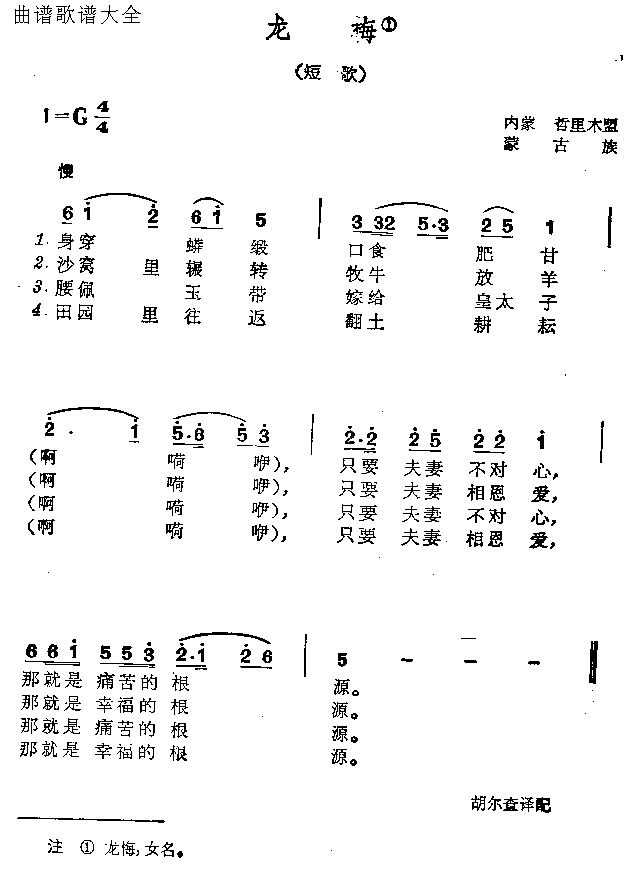 曲谱歌谱大全
龙 梅①
(短 歌)
1=G 4/4
内蒙 哲里木盟
蒙 古 族
慢
6 i 2 6 i 5 | 3 32 5·3 2 5 1 |
1. 身穿 蟒 缎 口食 肥 甘
2. 沙窝 里 辗 转 牧牛 放 羊
3. 腰佩 玉 带 嫁给 皇太 子
4. 田园 里 往 返 翻土 耕 耘
2 · 1 5·6 5 3 | 2·2 2 5 2 2 i |
(啊 嗬 咿), 只要 夫妻 不对 心,
(啊 嗬 咿), 只要 夫妻 相恩 爱,
(啊 嗬 咿), 只要 夫妻 不对 心,
(啊 嗬 咿), 只要 夫妻 相恩 爱,
6 6 i 5 5 3 2·1 2 6 | 5 - - - ‖
那就是 痛苦的 根 源。
那就是 幸福的 根 源。
那就是 痛苦的 根 源。
那就是 幸福的 根 源。
胡尔查译配
注 ① 龙梅,女名。